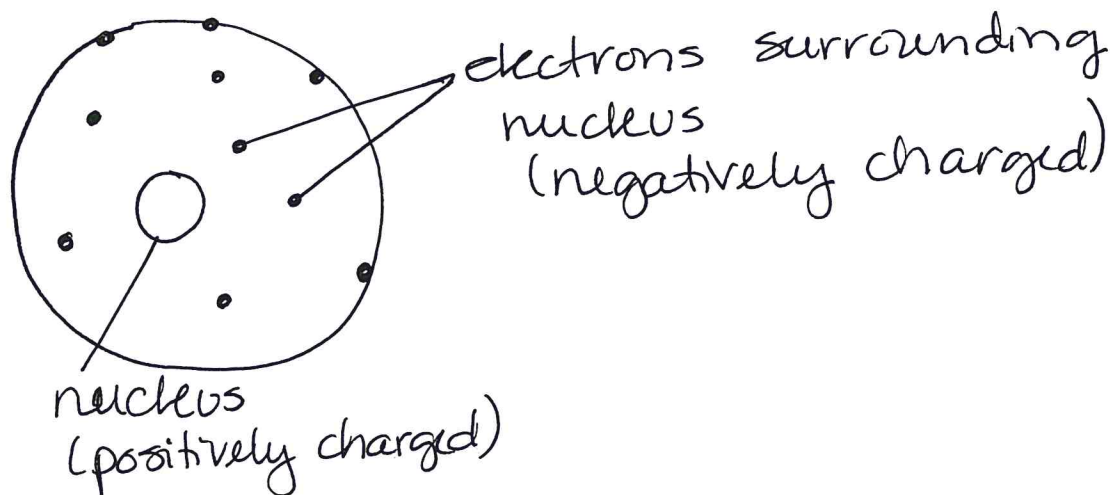 electrons surrounding
nucleus
(negatively charged)
nucleus
(positively charged)